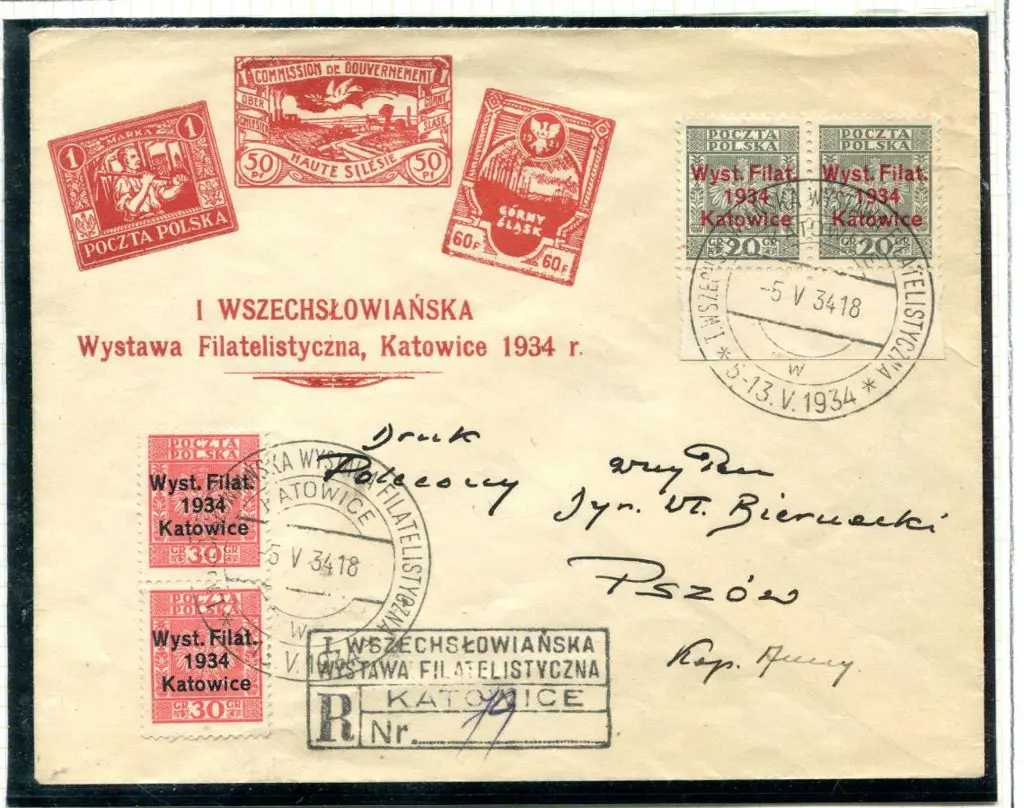 COMMISSION DE GOUVERNEMENT
OBER SCHLESIEN
GÓRNY ŚLĄSK
50 PF 50 PF
HAUTE SILESIE
1 MARKA 1
POCZTA POLSKA
GÓRNY
ŚLĄSK
60F 60F
I WSZECHSŁOWIAŃSKA
Wystawa Filatelistyczna, Katowice 1934 r.
POCZTA POLSKA
Wyst. Filat.
1934
Katowice
GR 20 GR
POCZTA POLSKA
Wyst. Filat.
1934
Katowice
GR 20 GR
-5 V 34 18
w
* 5-13.V.1934 *
Druk
Polecony
Dyr. Wł. Biernacki
Pszów
Kop. Anny
POCZTA POLSKA
Wyst. Filat.
1934
Katowice
GR 30 GR
POCZTA POLSKA
Wyst. Filat.
1934
Katowice
GR 30 GR
WYSTAWA FILATELISTYCZNA
KATOWICE
-5 V 34 18
w
I. WSZECHSŁOWIAŃSKA
WYSTAWA FILATELISTYCZNA
KATOWICE
R Nr. 79